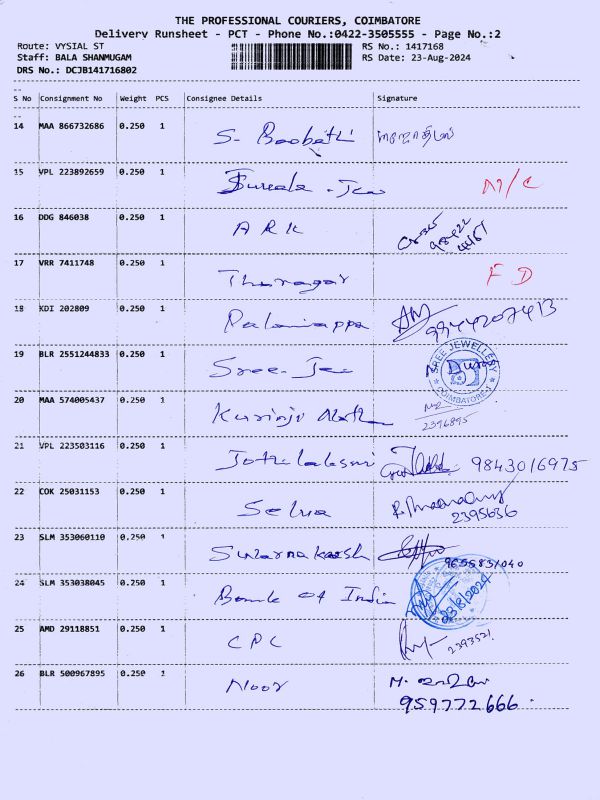 THE PROFESSIONAL COURIERS, COIMBATORE
Delivery Runsheet - PCT - Phone No.:0422-3505555 - Page No.:2
Route: VYSIAL ST RS No.: 1417168
Staff: BALA SHANMUGAM RS Date: 23-Aug-2024
DRS No.: DCJB141716802
S No Consignment No Weight PCS Consignee Details Signature
14 MAA 866732686 0.250 1 S. Boobathi
15 VPL 223892659 0.250 1 N/C
16 DDG 846038 0.250 1 A R K
17 VRR 7411748 0.250 1 F D
18 KDI 202809 0.250 1 Palaniappa 9944207413
19 BLR 2551244833 0.250 1 Sree SREE JEWELLERY COIMBATORE-1
20 MAA 574005437 0.250 1 2396895
21 VPL 223503116 0.250 1 9843016975
22 COK 25031153 0.250 1 Selva 2395636
23 SLM 353060110 0.250 1
24 SLM 353038045 0.250 1 Bank of India 23/8/2024
25 AMD 29118851 0.250 1 CPC 2393521
26 BLR 500967895 0.250 1 Noor M.
959772666